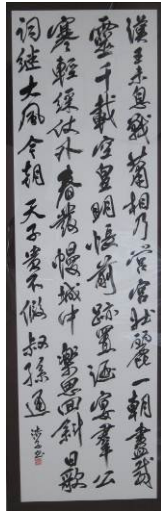 漢王未息戰蕭相乃营宮壯麗一朝盡威
靈千載空皇明悵前跡置酒宴羣公
寒輕綵仗外春發幔城中樂思回斜日歌
詞継大風今朝天子貴不假叔孫通